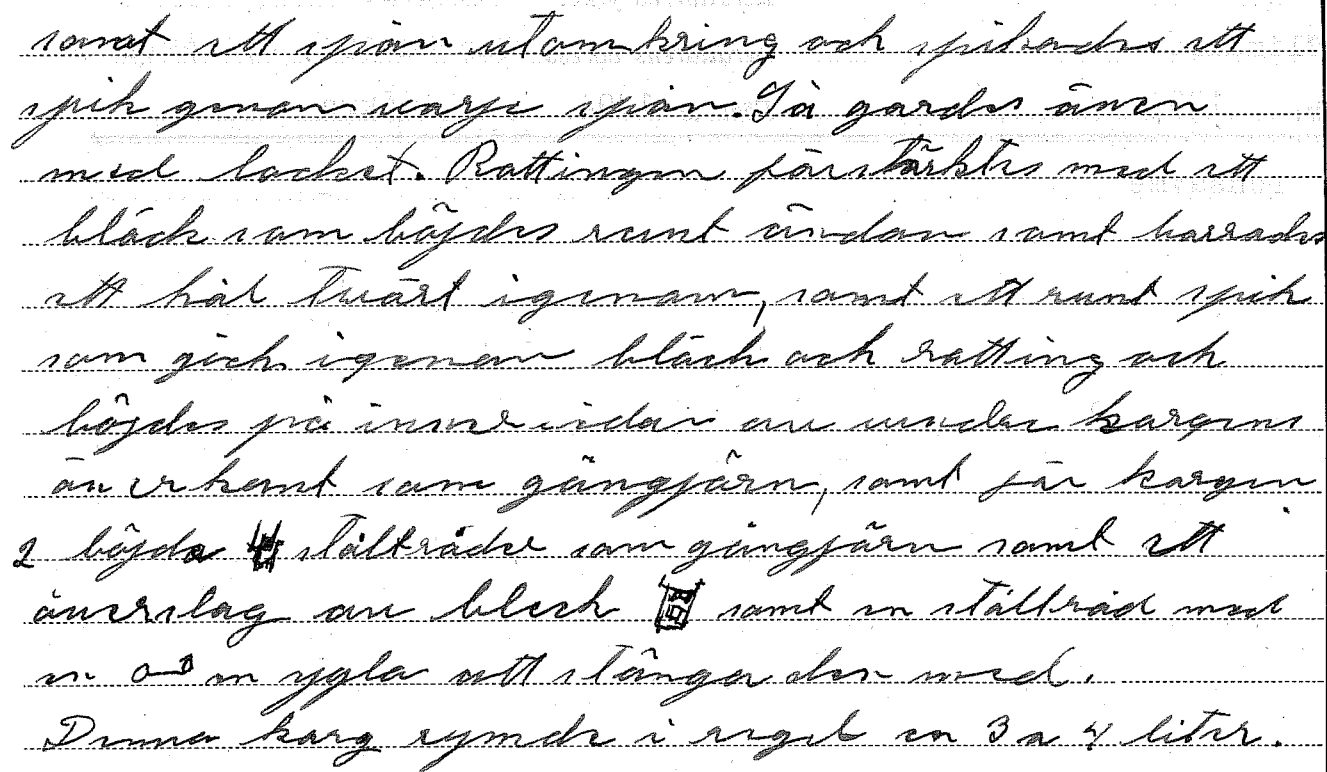 samt ett spån utomkring och spikades ett
spik genom varje spån. Så gordes även
med locket. Rottingen förstärktes med ett
bläck som böjdes runt ändan samt borrades
ett hål tvärt igenom, samt ett runt spik
som gick igenom bläck och rotting och
böjdes på innersidan av undre korgens
överkant som gångjärn, samt för korgen
2 böjda ståltråder som gångjärn samt ett
överslag av bleck samt en ståltråd med
en ögla att stänga den med.
Denna korg rymde i regel en 3 a 4 liter.